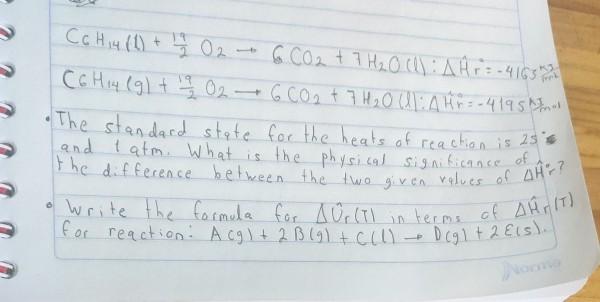 C6H14(l) + 19/2 O2 → 6CO2 + 7H2O(l); ΔĤr° = -4163 kJ/mol
C6H14(g) + 19/2 O2 → 6CO2 + 7H2O(l); ΔĤr° = -4195 kJ/mol
• The standard state for the heats of reaction is 25°
and 1 atm. What is the physical significance of
the difference between the two given values of ΔĤr°?
• Write the formula for ΔÛr(T) in terms of ΔĤr(T)
for reaction: A(g) + 2B(g) + C(l) → D(g) + 2E(s).
Norma